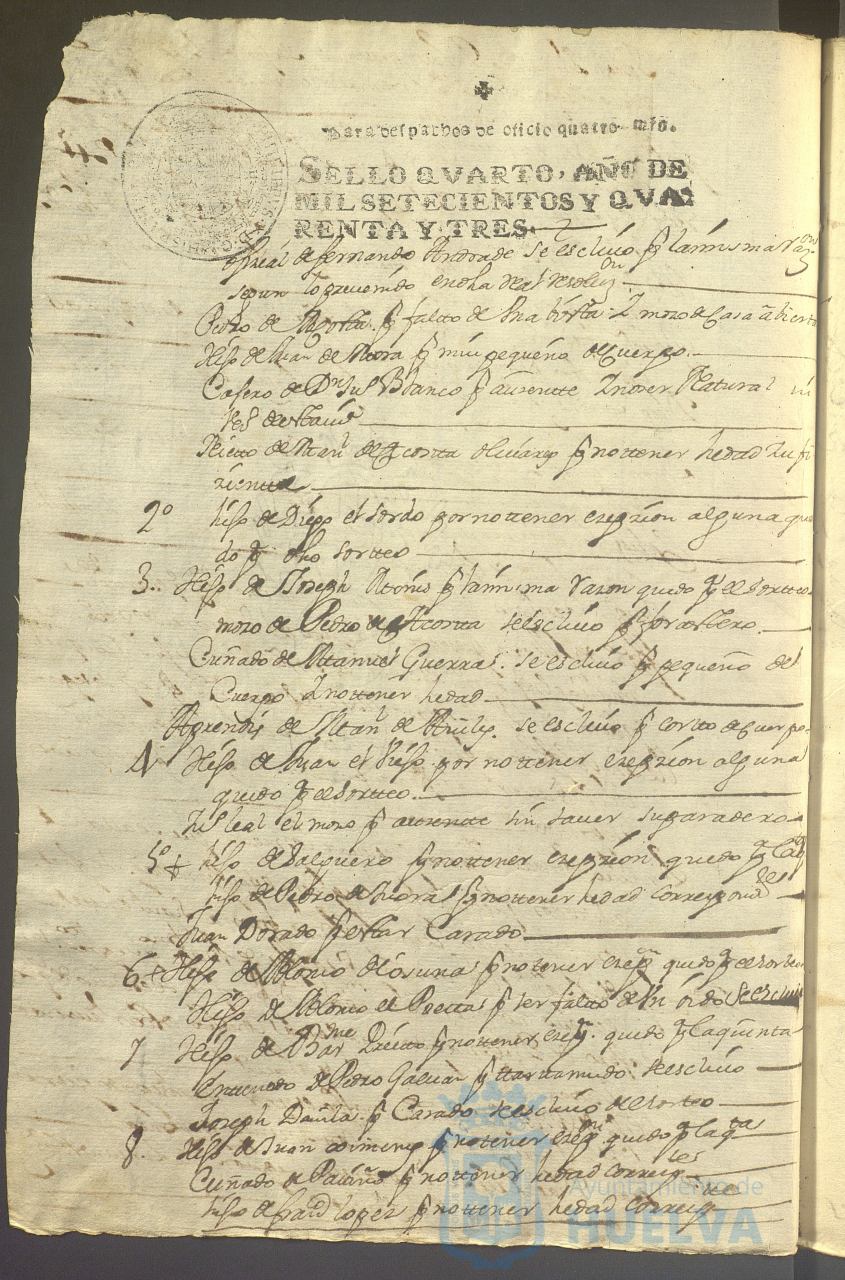 Para despachos de oficio quatro mrs.
SELLO QVARTO, AÑO DE
MIL SETECIENTOS Y QVA
RENTA Y TRES.
ofizial de fernando Andrade se escluio pr la misma razon
segun lo prevenido en dha Real
Pedro de pr falto de Vna vista. Y mozo de Casa abierta
Hijo de Juan de Mora pr mui pequeño de Cuerpo
Casero de Dn Blanco pr ausente Y no ser Natural
Nieto de de Acosta olivares pr no ttener hedad sufi
ziente
2º hijo de Diego el sordo por no ttener exepzion alguna que
do pr dho sortteo
3. Hijo de Joseph pr la misma razon quedo pr el sortteo
mozo de Pedro de Acosta se escluio pr forastero
Cuñado de Manuel Guerra se escluio pr pequeño de
Cuerpo Y no ttener hedad
Aprendis de Man de se escluio pr corto de Cuerpo
4 Hijo de Juan el Viejo por no ttener exepzion alguna
quedo pr el sortteo
el mozo pr ausente sin saver su paradero
5º hijo de Salguero pr no ttener exepzion quedo pr
hijo de Pedro de Mora pr no ttener hedad correspondte
Juan Dorado pr estar Casado
6 Hijo de Alonso de osuna pr no tener exepn quedo pr el sorteo
Hijo de Alonso el Poetta pr ser falto de Vn oido se escluio
7 Hijo de Barme Prieto pr no ttener exepn. quedo pr la quinta
Entenado de Pedro Galvan pr tartamudo se escluio
Joseph Davila pr Casado se escluio del sorteo
8. Hijo de Juan ximenez pr no ttener exepn quedo pr la qta
Cuñado de pr no ttener hedad
hijo de lopez pr no ttener hedad
Ayuntamiento de
HUELVA